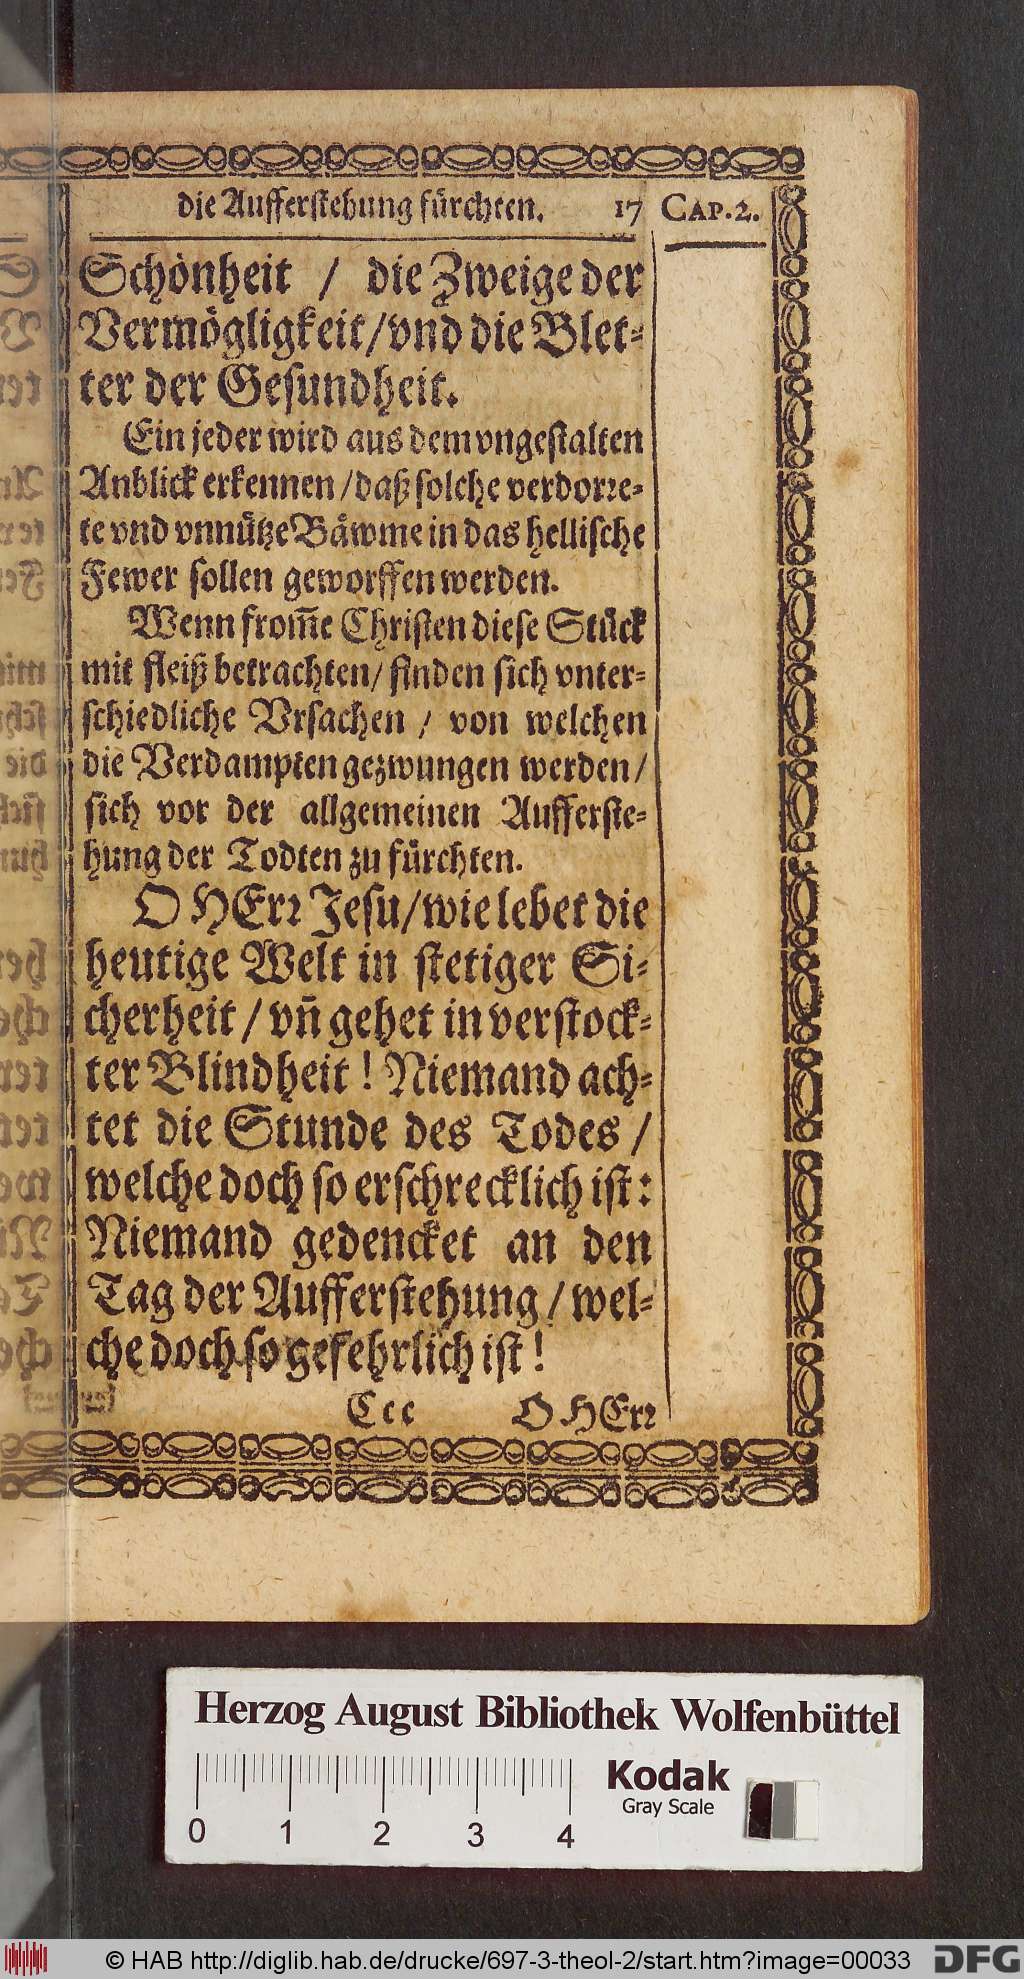 die Aufferstehung fürchten. 17 CAP. 2.
Schönheit / die Zweige der
Vermögligkeit / vnd die Blet-
ter der Gesundheit.
Ein jeder wird aus dem vngestalten
Anblick erkennen / daß solche verdorre-
te vnd vnnütze Bäwme in das hellische
Fewer sollen geworffen werden.
Wenn from̅e Christen diese Stück
mit fleiß betrachten / finden sich vnter-
schiedliche Vrsachen / von welchen
die Verdampten gezwungen werden /
sich vor der allgemeinen Aufferste-
hung der Todten zu fürchten.
O HErr Jesu / wie lebet die
heutige Welt in stetiger Si-
cherheit / vn̅ gehet in verstock-
ter Blindheit ! Niemand ach-
tet die Stunde des Todes /
welche doch so erschrecklich ist :
Niemand gedencket an den
Tag der Aufferstehung / wel-
che doch so gefehrlich ist !
C c c O HErr
Herzog August Bibliothek Wolfenbüttel
Kodak
Gray Scale
0 1 2 3 4
© HAB http://diglib.hab.de/drucke/697-3-theol-2/start.htm?image=00033 DFG